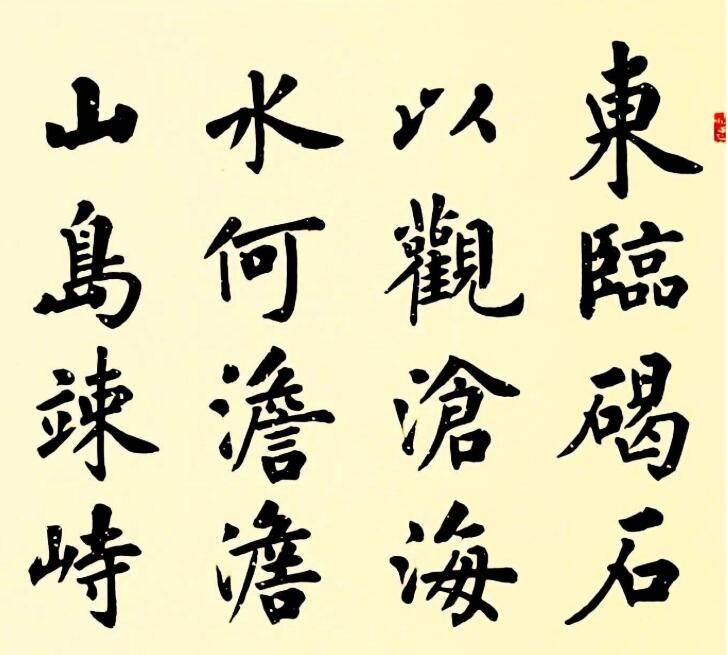 東臨碣石
以觀滄海
水何澹澹
山島竦峙